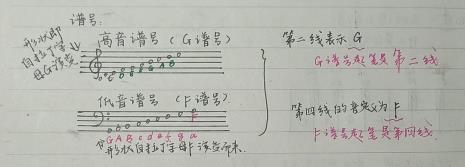 谱号:
形状即
自拉丁字
母G演变
高音谱号（G谱号）
低音谱号（F谱号）
G A B c d e f g a
形状自拉丁字母F演变而来.
第二线表示G
G谱号起笔是第二线
第四线的音定义为F
F谱号起笔是第四线.